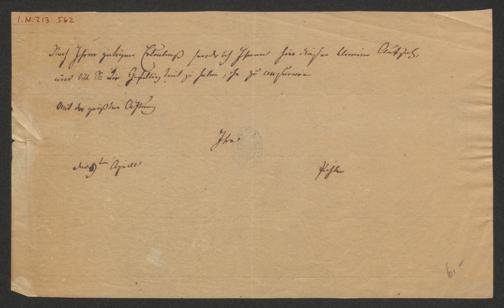 I.N. 213 562
Nach Ihrer gütigen Erlaubniß sende ich Ihnen hier diesen kleinen Aufsatz,
und bitte Sie die Gefälligkeit zu haben, ihn zu
Mit der größten Achtung
Ihre
den 9ten April
Pichler
6.-